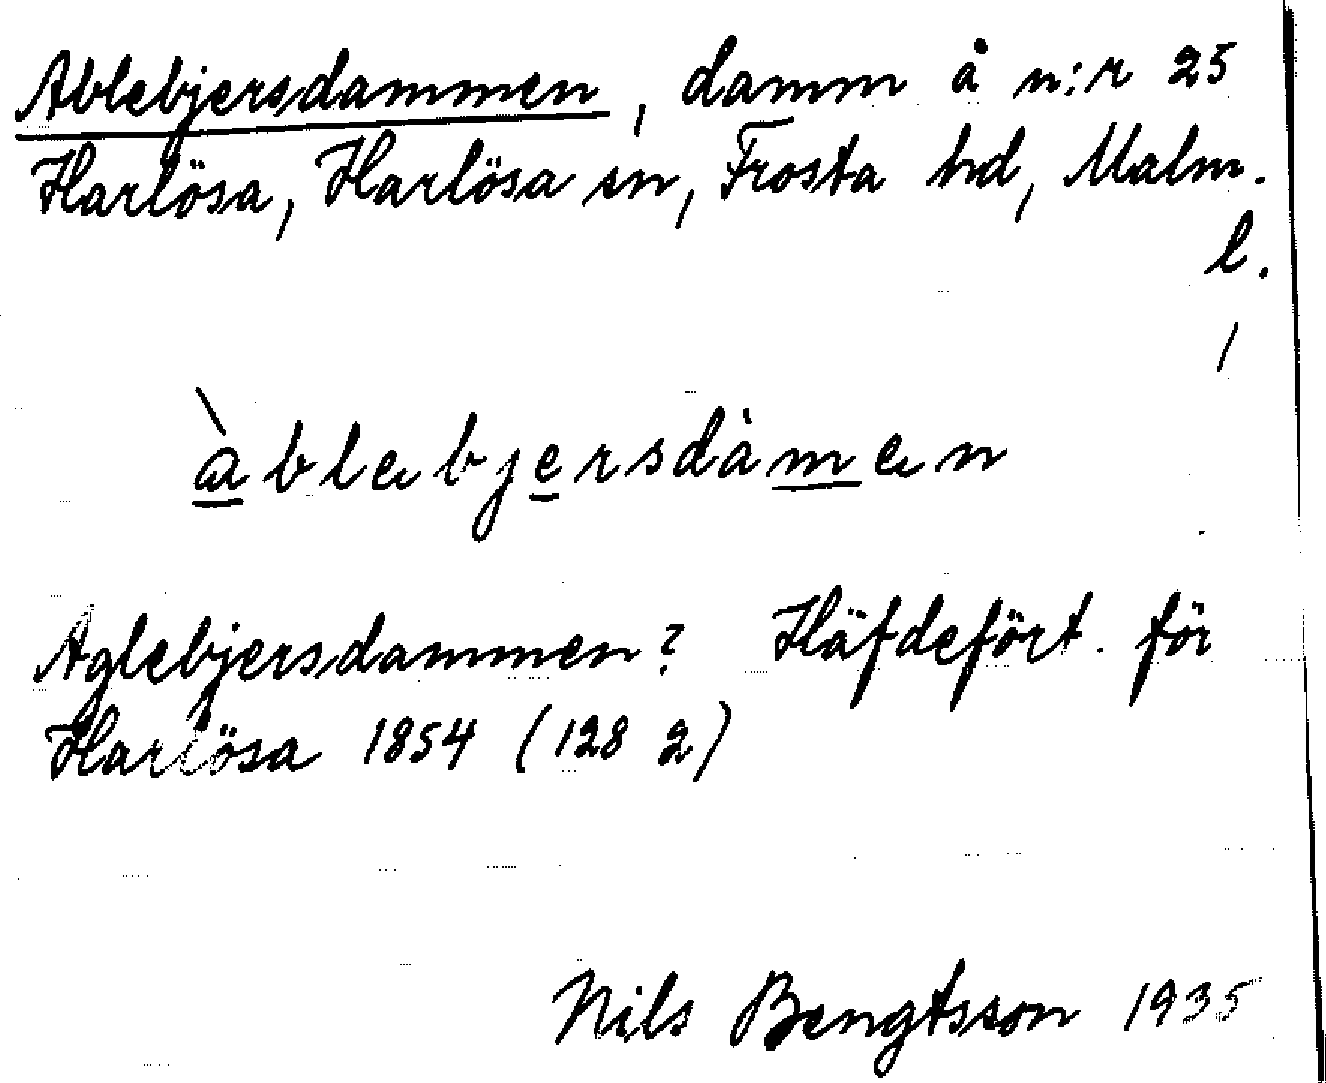 Ablebjersdammen, damm å n:r 25
Harlösa, Harlösa sn, Frosta hd, Malm.
l.
/
àblebjersdàmen
Aglebjersdammen? Häfdefört. för
Harlösa 1854 (128 2)
Nils Bengtsson 1935